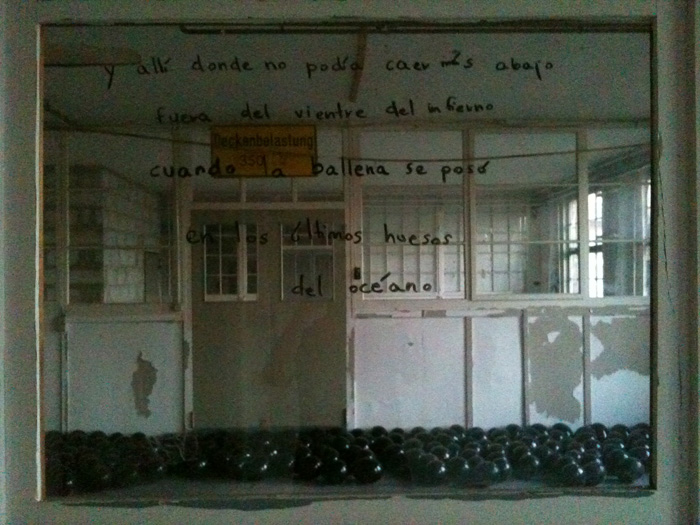 y allí donde no podía caer más abajo
fuera del vientre del infierno
Deckenbelastung
350
cuando la ballena se posó
en los últimos huesos
del océano